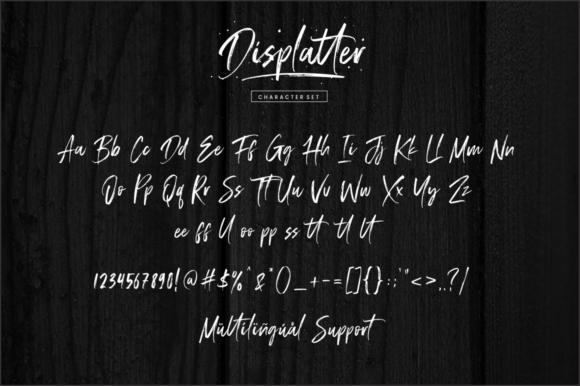 Displatter
CHARACTER SET
Aa Bb Cc Dd Ee Ff Gg Hh Ii Jj Kk Ll Mm Nn
Oo Pp Qq Rr Ss Tt Uu Vv Ww Xx Yy Zz
ee ff ll oo pp ss tt tl lt
1234567890!@#$%^&*()_+-=[]{}:;'"<>,.?/
Mültilïñgúàl Support